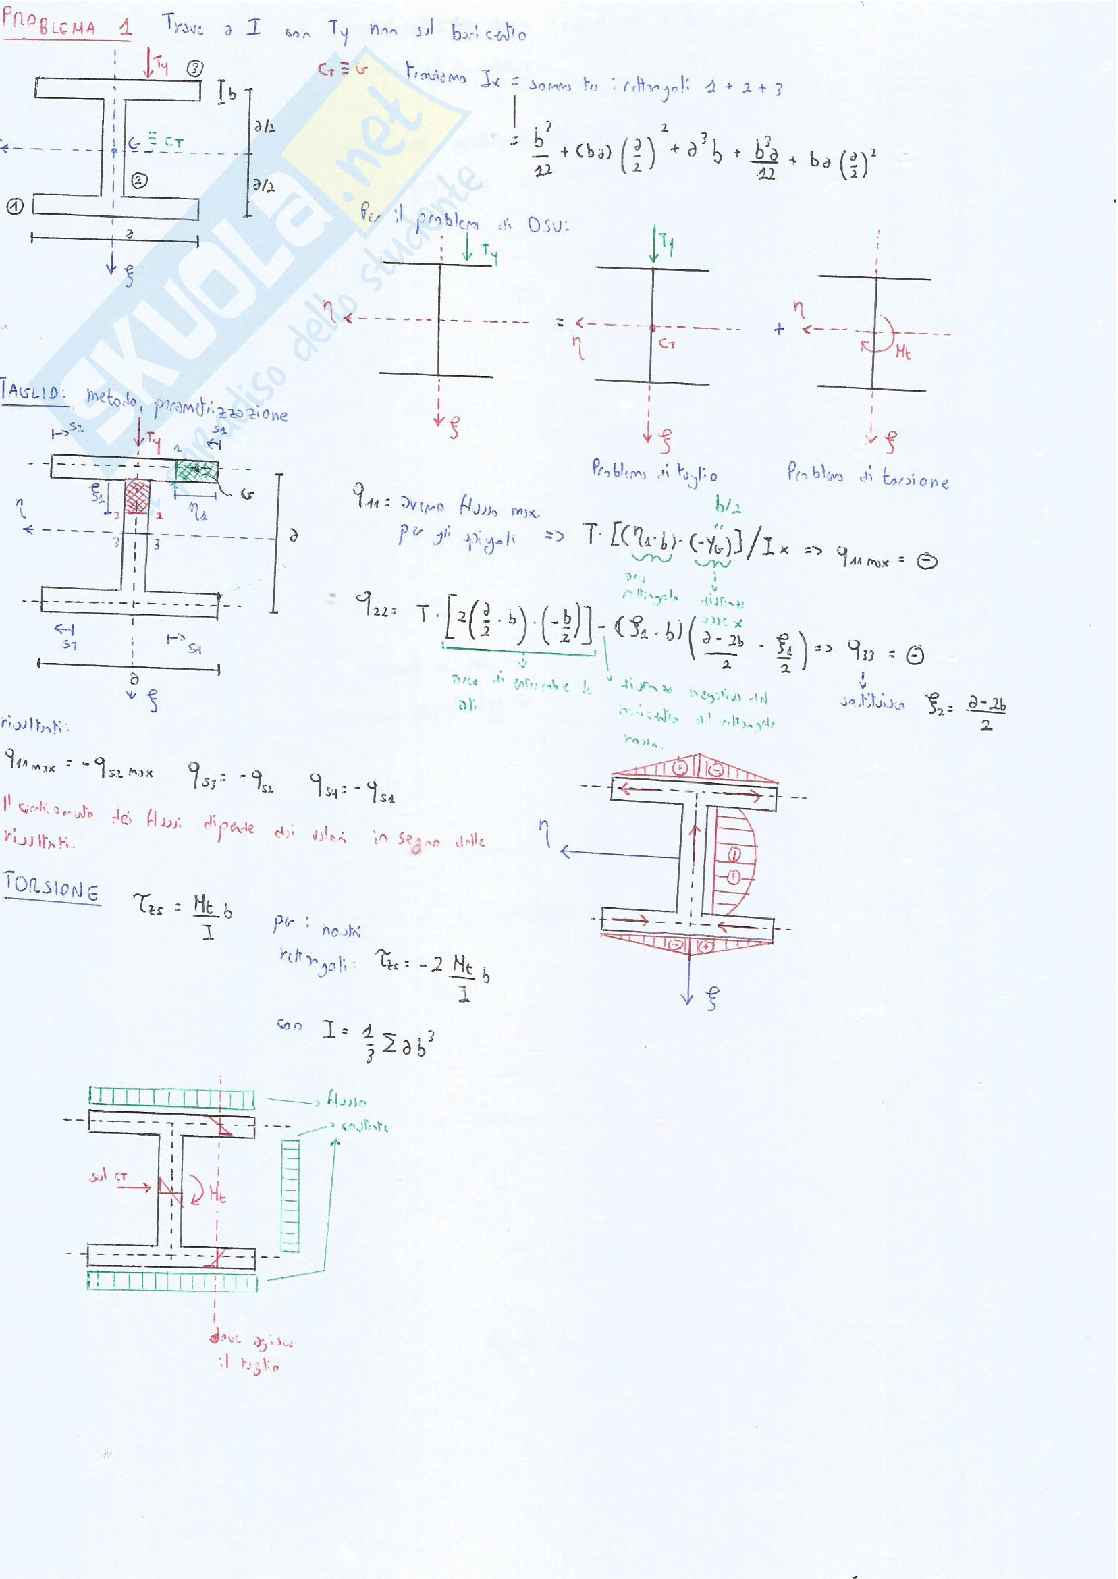 PROBLEMA 1 Trave a I con Ty non sul baricentro
CT ≡ G troviamo Ix = somma tra i rettangoli 1 + 2 + 3
Ty
③
b
a/2
G ≡ CT
②
a/2
①
a
ξ
= b³/12 + (ba) (a/2)² + a³b + b³a/12 + ba (a/2)²
Per il problema di DSV:
Ty
η
ξ
=
Ty
η
CT
ξ
+
η
Mt
ξ
Problema di taglio
Problema di torsione
TAGLIO: metodo parametrizzazione
s2
Ty
s1
1
G
ξ2
η1
2 2
η
3 3
a
s1
s1
a
ξ
q11 = avremo flusso max
per gli spigoli => T · [(η1·b) · (-yG)] / Ix => q11 max = ⊖
b/2
area
rettangolo
distanza
asse x
q22 = T · [2(a/2 · b) · (-b/2)] - (ξ1 · b) ((a-2b)/2 - ξ1/2) => q33 = ⊖
area di entrambe le
ali
distanza negativa del
baricentro del rettangolo
rosso.
sostituisco ξ2 = (a-2b)/2
risultati:
q11 max = -qs2 max qs3 = -qs2 qs4 = -qs1
Il cambiamento dei flussi dipende dai valori in segno delle
risultati.
η
ξ
TORSIONE τzs = Mt/I b
per i nostri
rettangoli: τzs = -2 Mt/I b
con I = 1/3 Σ ab³
flusso
costante
sul CT
Mt
dove agisce
il taglio
SKUOLA.net
paradiso dello studente